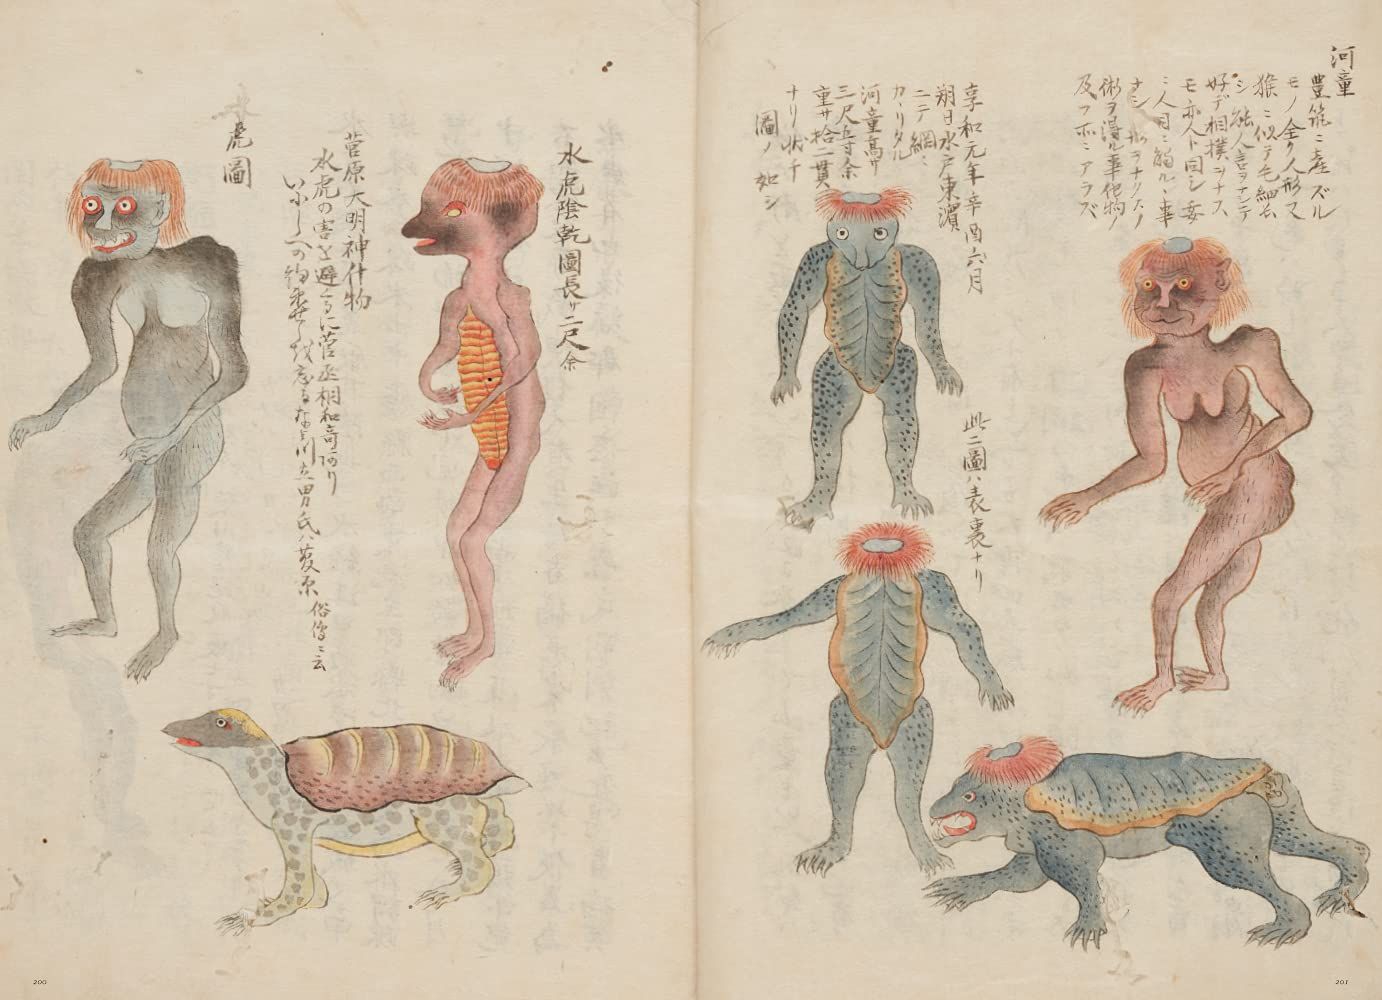 河童
豊筑ニ産ズル
モノ全ク人形ス
猴ニ似テ毛細長
シ能人言ヲナシテ
好デ相撲ヲナス
モ亦人ト同シ妄
ニ人目ニ觸ルヽ事
ナシ形ヲナクスノ
術ヲ得ル事他物ノ
及フホニアラズ
享和元年辛酉六月
朔日水戸東濵
ニテ網ニ
カヽリタル
河童高サ
三尺五寸余
重サ拾二貫
ナリ状チ
圖ノ如シ
此二圖ハ表裏ナリ
水虎陰乾圖長サ二尺余
菅原大明神什物
水虎の害を避るに菅丞相和哥アリ
いにしへの約束せしを忘るなよ川立男氏ハ菅原
俗傳ニ云
虎圖
200
201